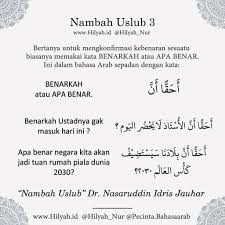 Nambah Uslub 3
www.Hilyah.id @Hilyah_Nur
Bertanya untuk mengkonfirmasi kebenaran sesuatu
biasanya memakai kata BENARKAH atau APA BENAR.
Ini dalam bahasa Arab sepadan dengan kata:
BENARKAH
atau APA BENAR.
أَحَقًّا أَنَّ
Benarkah Ustadnya gak
masuk hari ini ?
أَحَقًّا أَنَّ الْأُسْتَاذَ لَا يَحْضُرُ الْيَوْمَ ؟
Apa benar negara kita akan
jadi tuan rumah piala dunia
2030?
أَحَقًّا أَنَّ بِلَادَنَا سَيَسْتَضِيْفُ
كَأْسَ الْعَالَمِ ٢٠٣٠؟
"Nambah Uslub" Dr. Nasaruddin Idris Jauhar
www.Hilyah.id @Hilyah_Nur @Pecinta.Bahasaarab